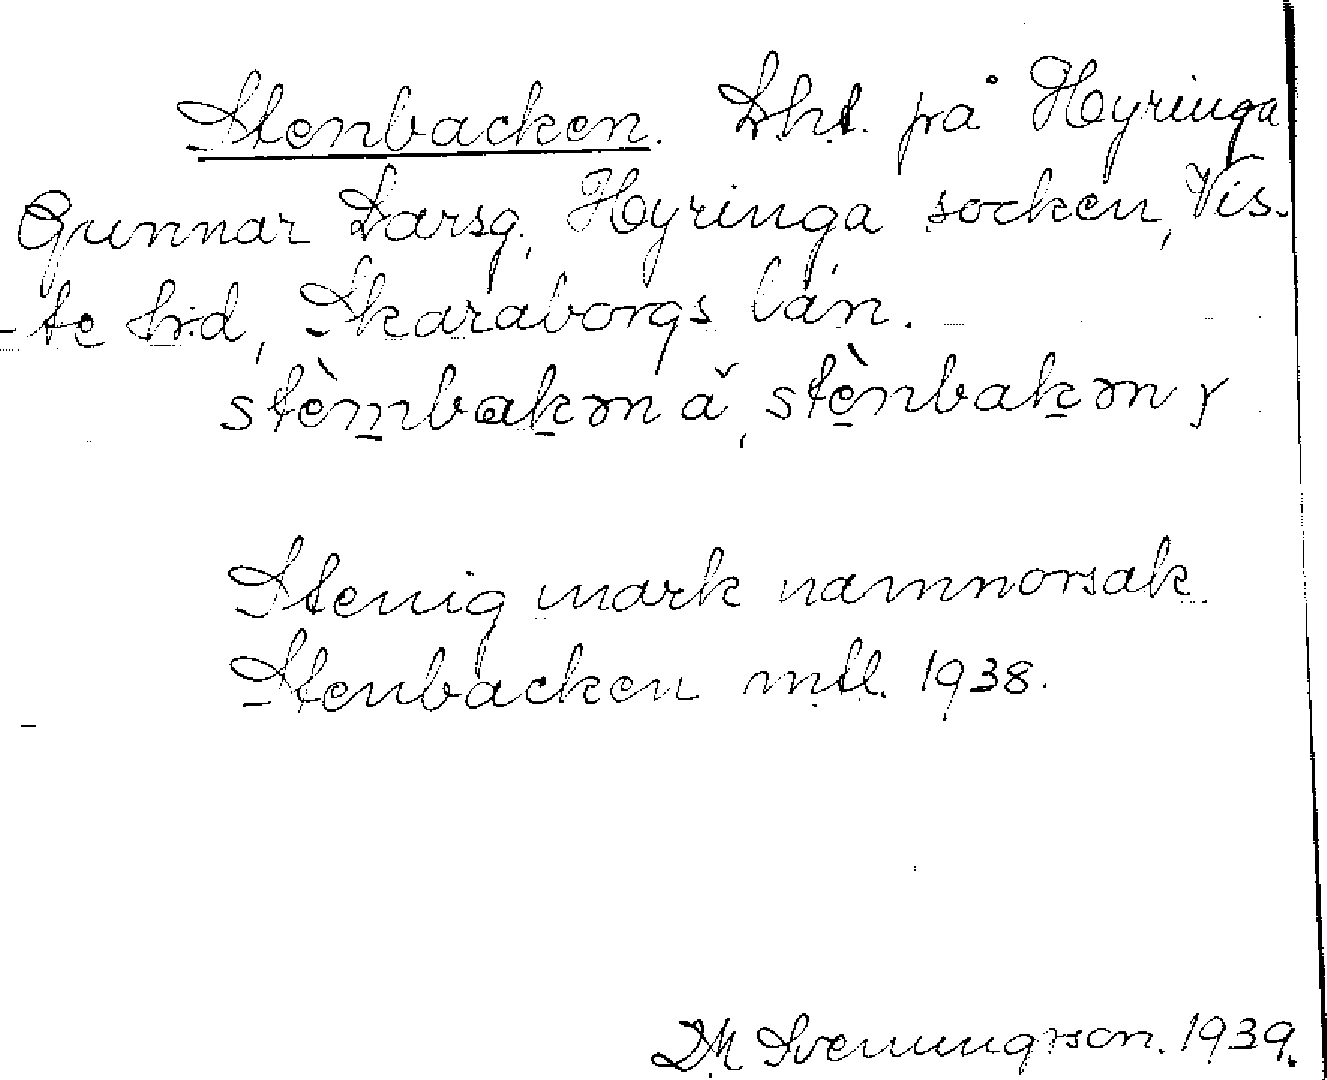 Stenbacken. Lht. på Hyringa
Gunnar Larsg., Hyringa socken, Vis-
-te hrd, Skaraborgs län.
stèmbakən ǎ, stènbakən γ
Stenig mark namnorsak.
Stenbacken mtl. 1938.
DM Svenungsson. 1939.